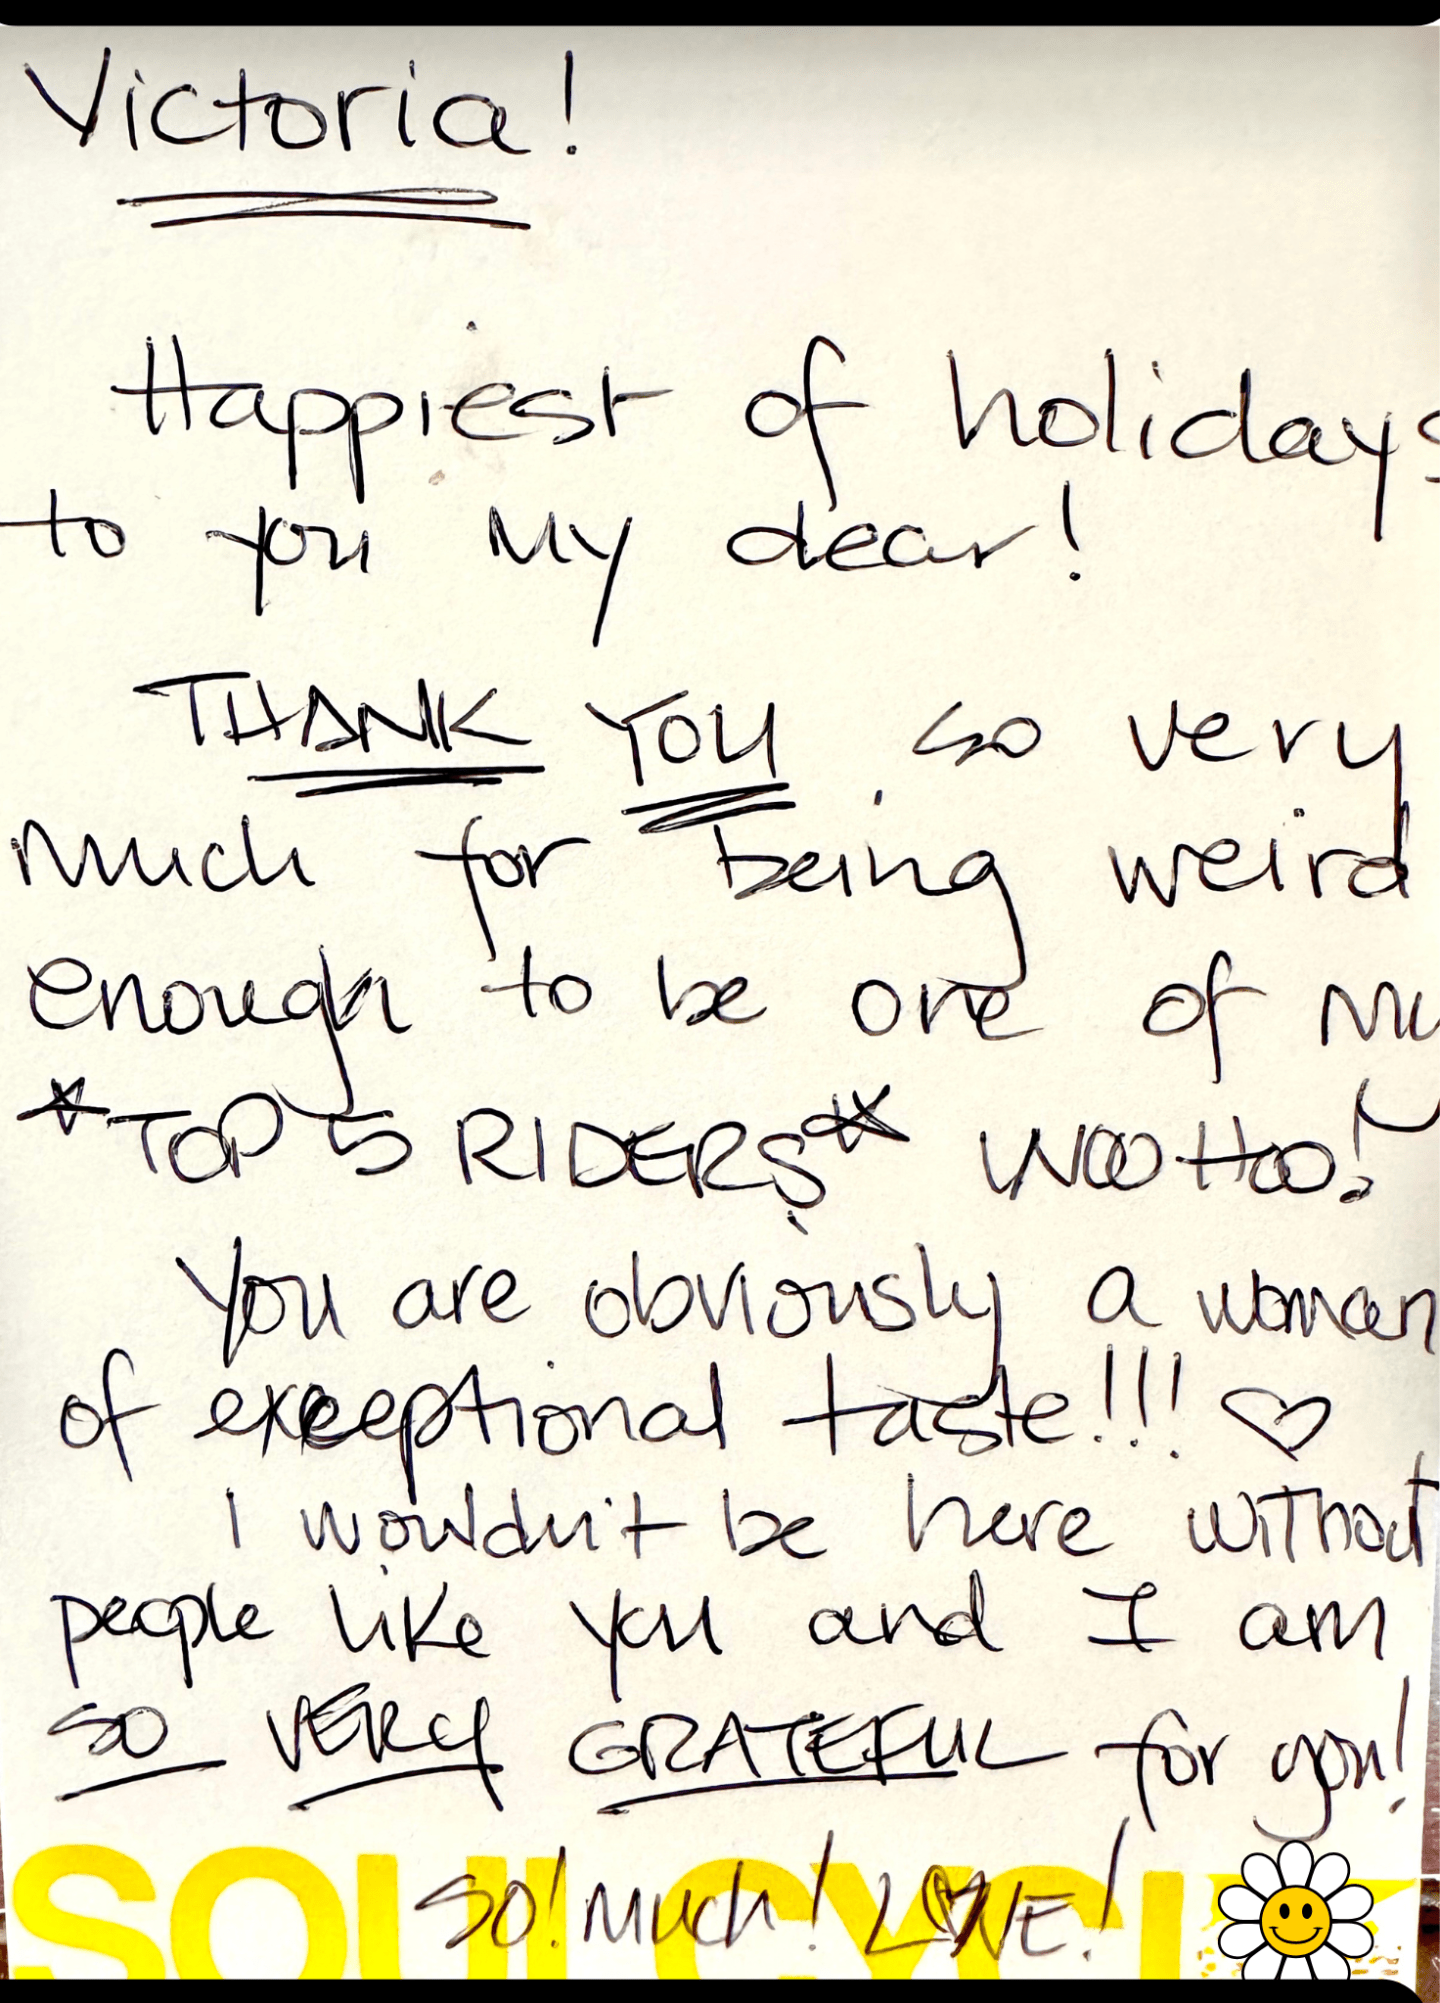 Victoria!
Happiest of holidays
to you my dear!
THANK YOU so very
much for being weird
enough to be one of my
*TOP 5 RIDERS* WOOHOO!
You are obviously a woman
of exceptional taste!!! ♡
I wouldn't be here without
people like you and I am
SO VERY GRATEFUL for you!
SO! MUCH! LOVE!
SOULCYCL